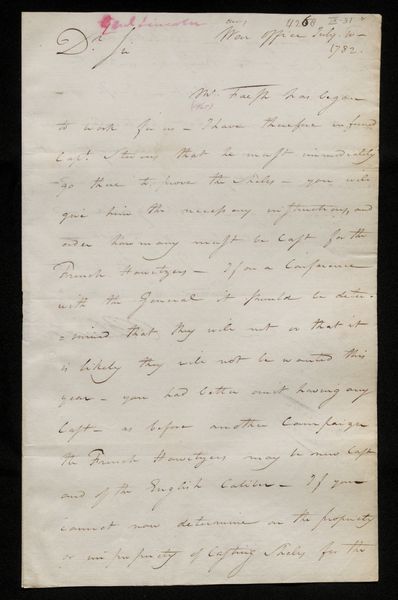 Genl Lincoln 4268
War Office July 10
1782
Dr Sir
Mr Faesh has begun
to work for us – I have therefore informd
Capt Stevens that he must immediately
go there to prove the Shells – you will
give him the necessary instructions, and
order how many must be Cast for the
French Howitzers – If on a Conference
with the General it should be deter-
=mined that they will not or that it
is likely they will not be wanted this
year – you had better omit having any
Cast – as before another Campaign
the French Howitzers may be new Cast
and of the English Calibre – If you
cannot now determine on the propriety
or impropriety of Casting Shells for the